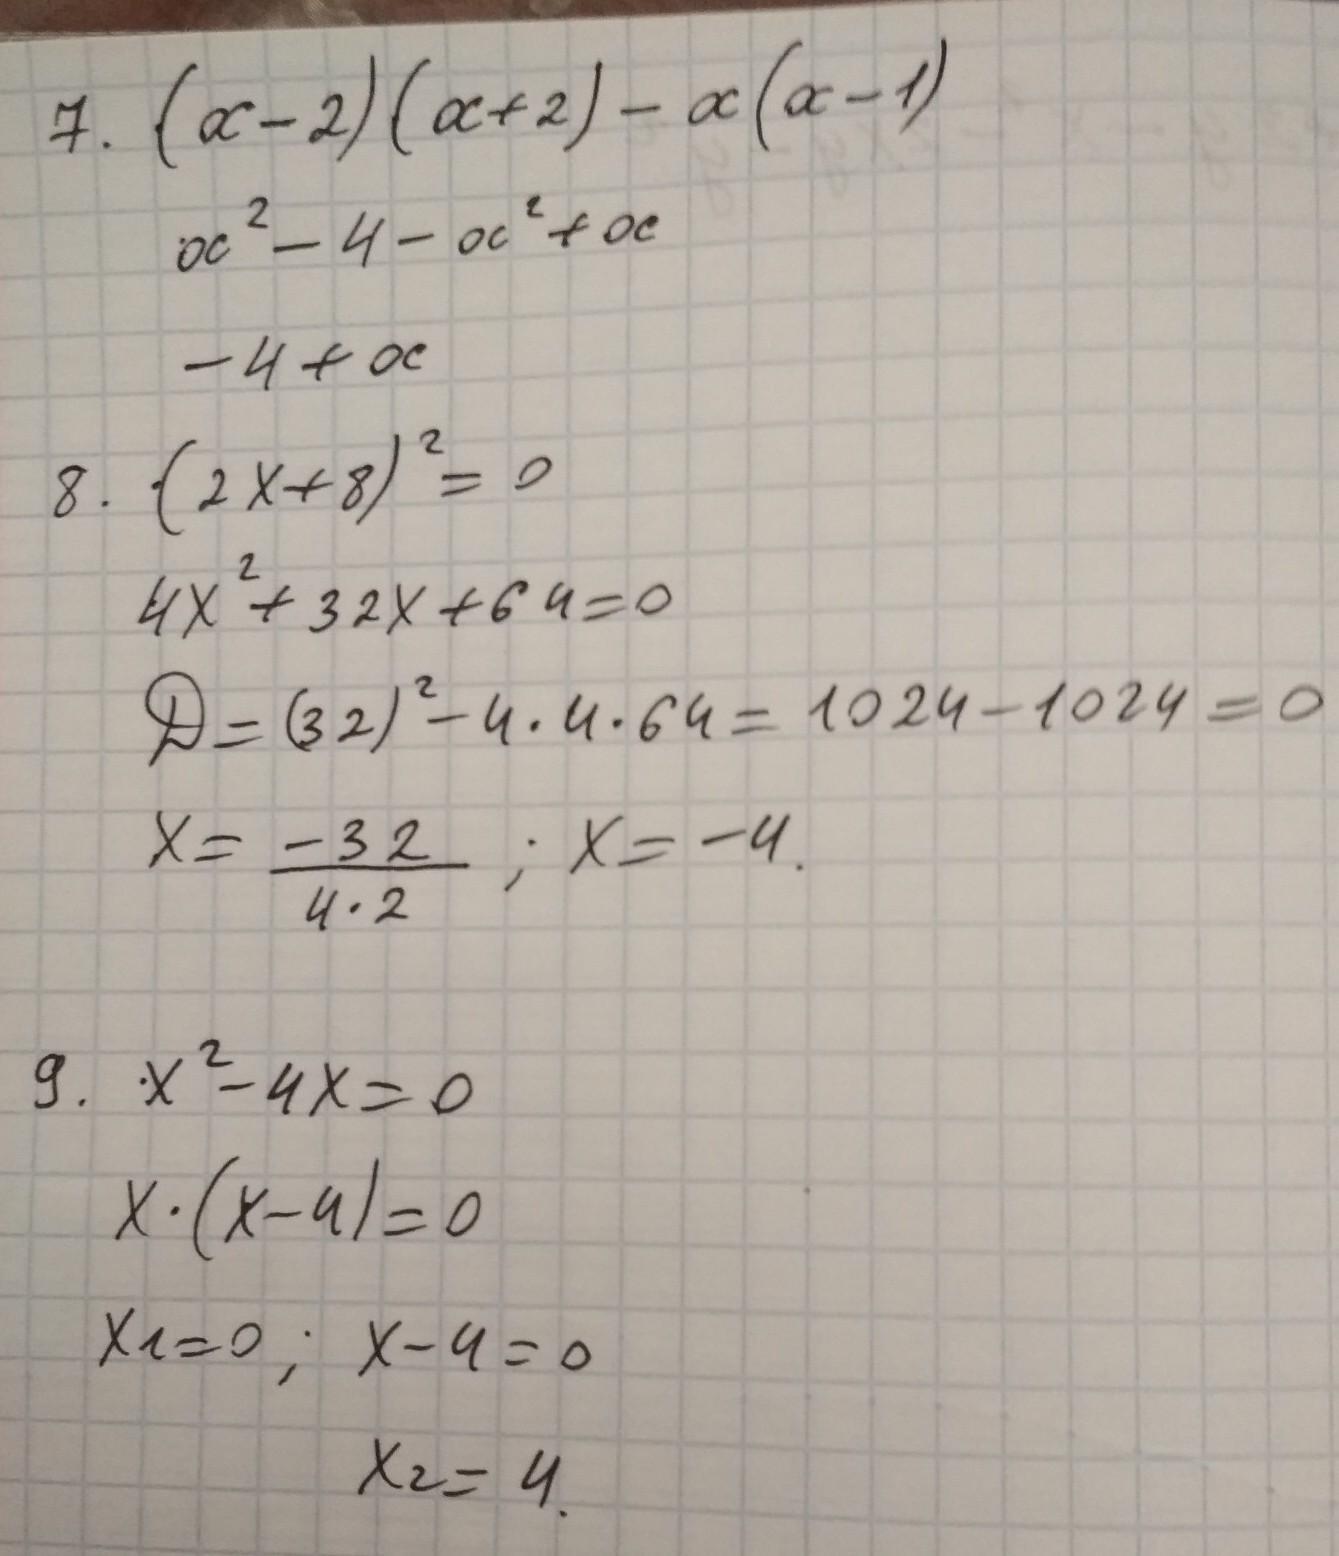 7. (x-2)(x+2)-x(x-1)
x²-4-x²+x
-4+x
8. (2x+8)²=0
4x²+32x+64=0
D=(32)²-4·4·64=1024-1024=0
x=-32/4·2; x=-4.
9. x²-4x=0
x·(x-4)=0
x1=0; x-4=0
x2=4.